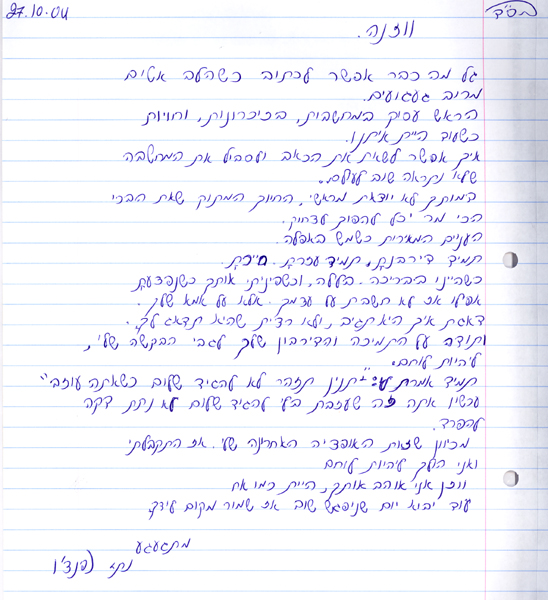 27.10.04
בס"ד
ווזנה.
גל מה כבר אפשר לכתוב כשהלב אטום
מרוב געגועים.
הראש עסוק במחשבות, בזיכרונות, וחוויות
כשעוד היית איתנו.
איך אפשר לשאת את הכאב ולסבול את המחשבה
שלא נתראה שוב לעולם..
לא יוצאת מראשי, החיוך המתוק שאת הבכי
הכי מר יכל להפוך לצחוק.
העניים המאירות כשמש באפלה.
תמיד דירבנת, תמיד עזרת. חייכת.
כשהיינו בבריכה בלילה, וכשפיניתי אותך כשנפצעת
אפילו אז לא חשבת על עצמך. אלא על אמא שלך.
דאגת איך היא תגיב, ולא רצית שהיא תדאג לך.
ותודה על התמיכה והדירבון שלך לגבי הבקשה שלי,
להיות לוחם.
תמיד אמרת לי: "תזהר לא להגיד שלום כשאתה עוזב"
עכשיו אתה זה שעזבת בלי להגיד שלום לא נתת דקה
להפרד.
מכיוון שזאת האופציה האחרונה שלי. אז התקבלתי
ואני הולך להיות לוחם
ווזן אני אוהב אותך, היית כמו אח
עוד יבוא יום שניפגש שוב אז שמור מקום לידך
מתגעגע